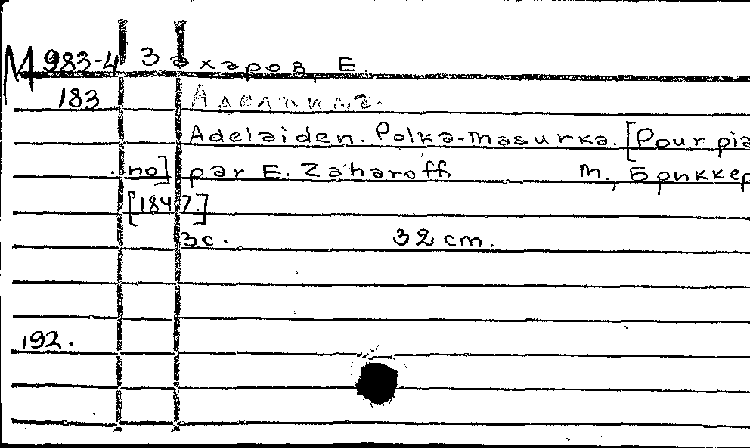 М 983-4 Захаров, Е.
183 Аделаида.
Adelaiden. Polka-masurka. [Pour pia
no] par E. Zaharoff. М., Бриккер
[1847.]
3с. 32 cm.
192.